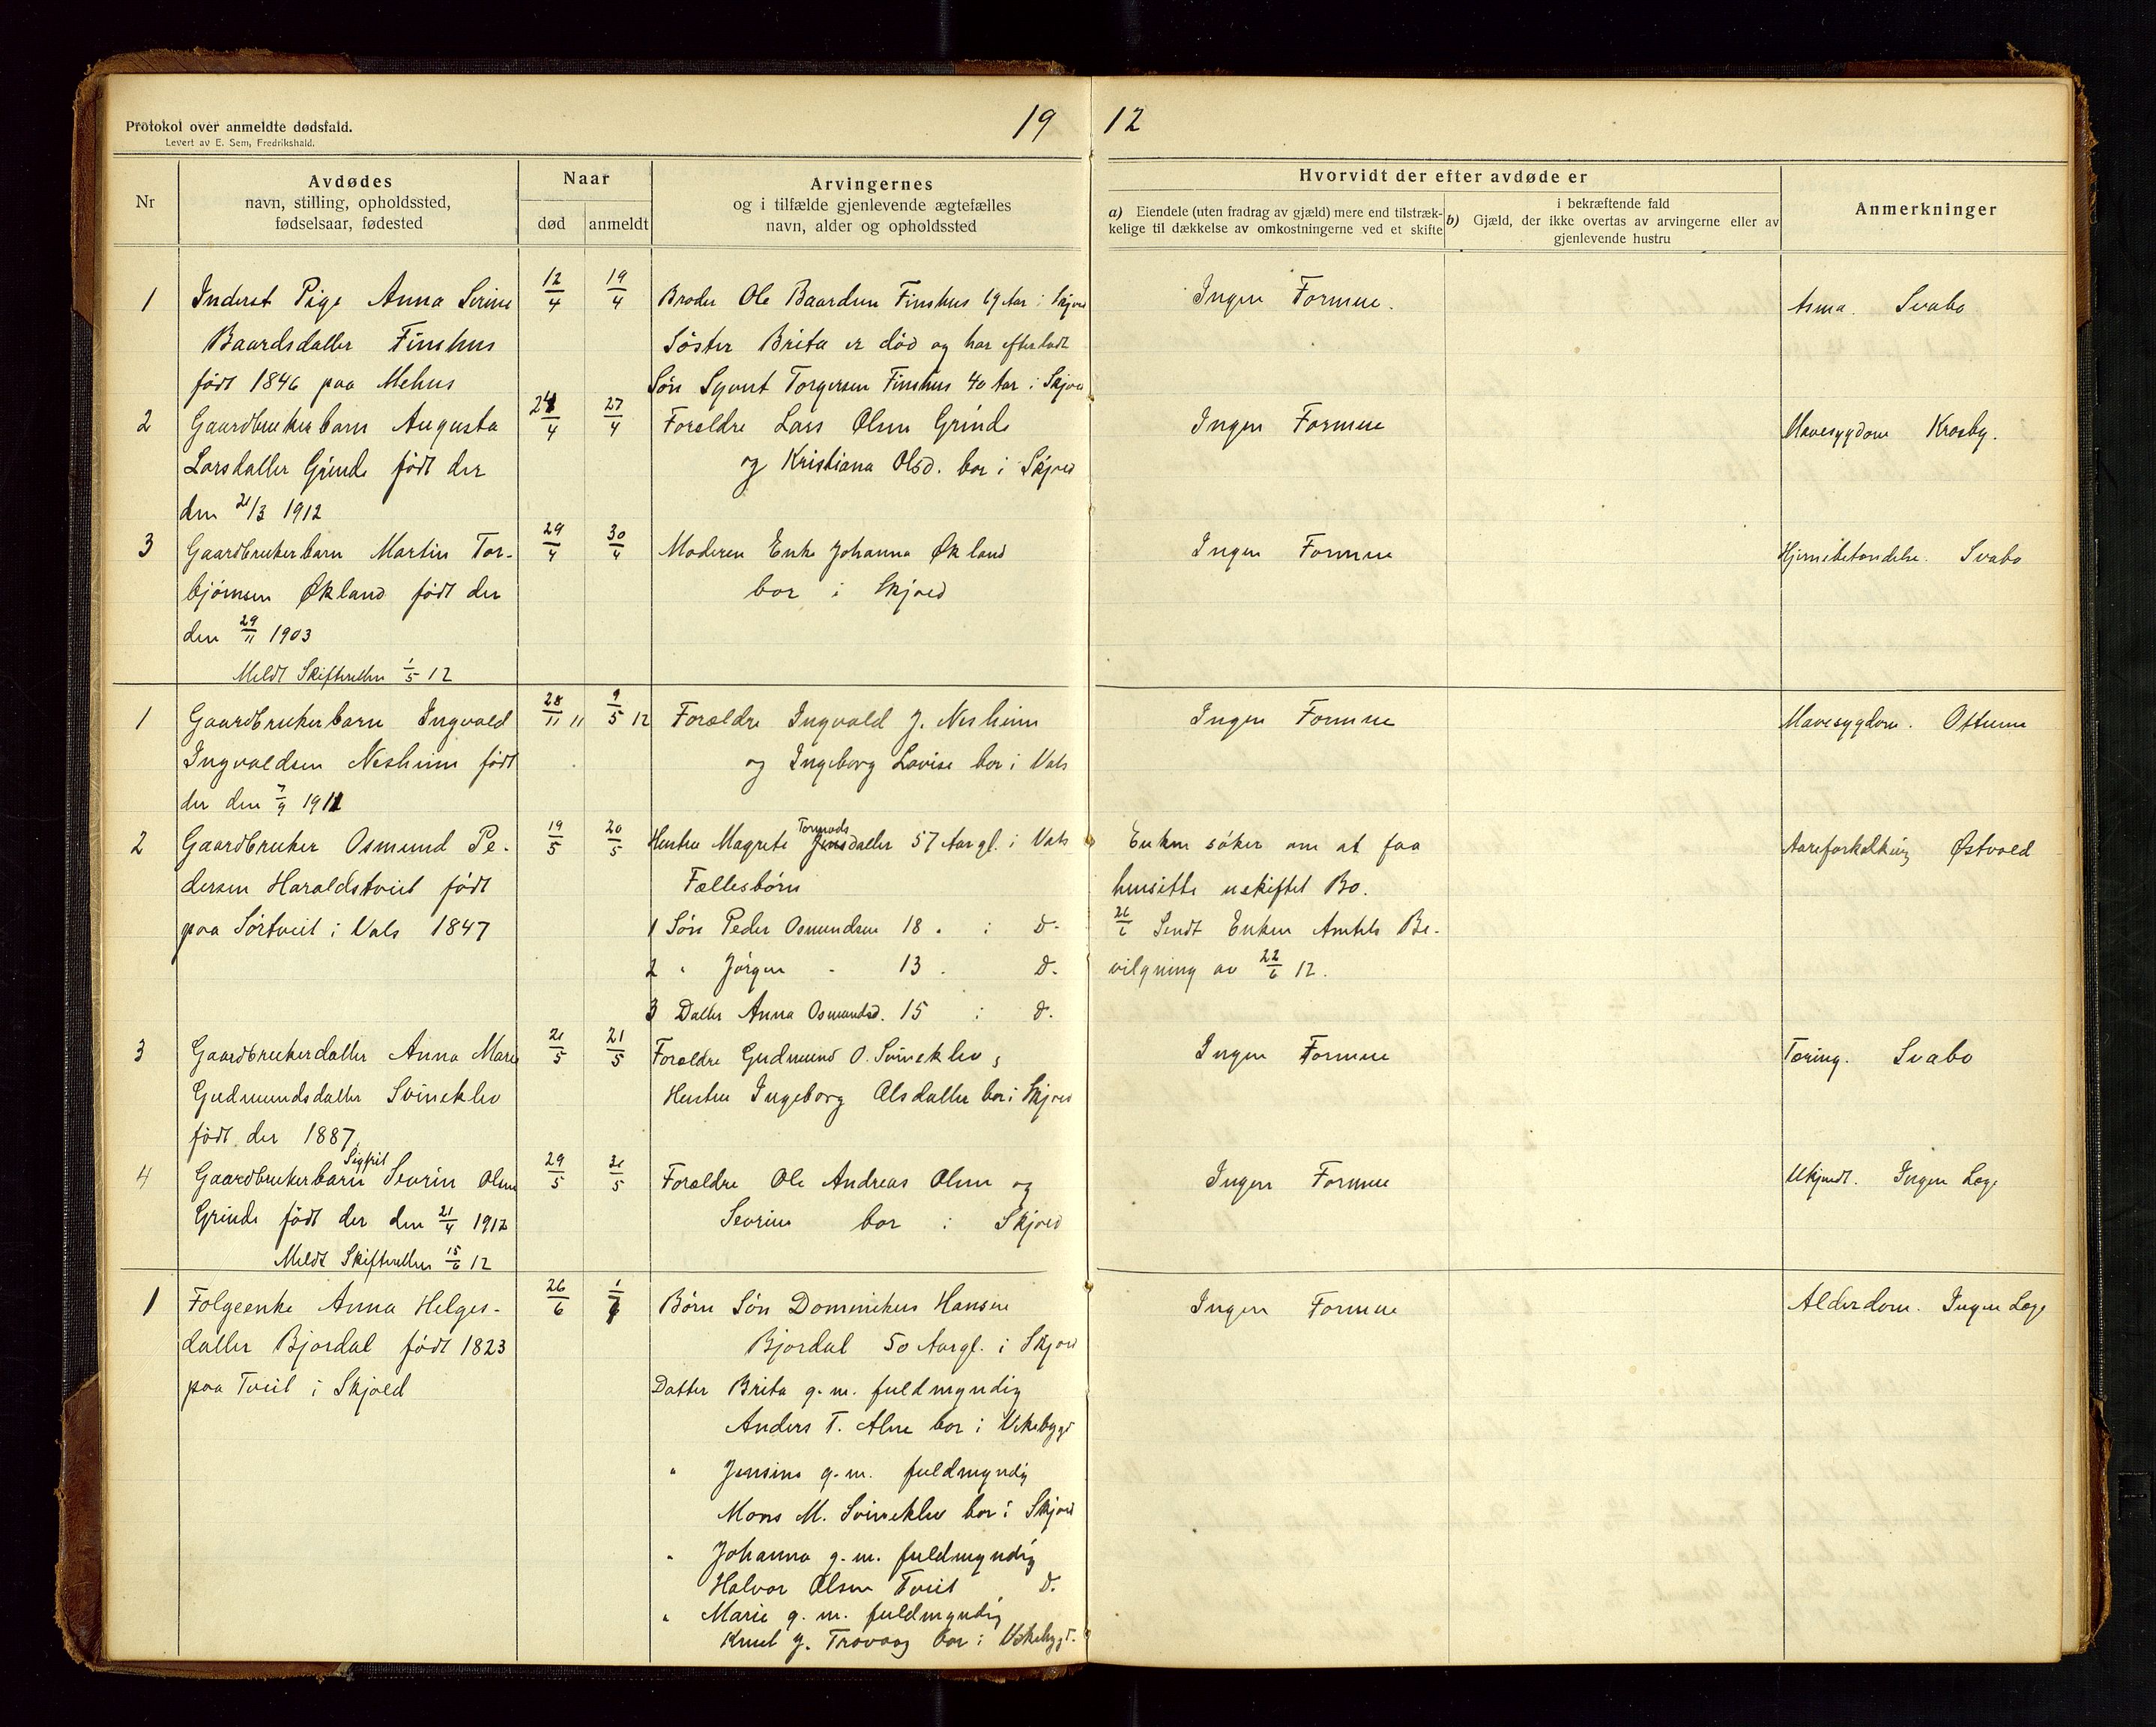 Protokol over anmeldte dødsfald.
Levert av E. Sem, Fredrikshald.
19 12
Nr
Avdødes
navn, stilling, opholdssted,
fødselsaar, fødested
Naar
død
anmeldt
Arvingernes
og i tilfælde gjenlevende ægtefælles
navn, alder og opholdssted
Hvorvidt der efter avdøde er
a) Eiendele (uten fradrag av gjæld) mere end tilstræk-
kelige til dækkelse av omkostningerne ved et skifte
i bekræftende fald
b) Gjæld, der ikke overtas av arvingerne eller av
gjenlevende hustru
Anmerkninger
1 Inderst Pige Anna Serine 12/4 19/4 Broder Ole Baardsen Finshus 69 Aar i Skjold Ingen Formue. Asma. Svabo
Baardsdatter Finshus Søster Brita er død og har efterladt
født 1846 paa Mehus Søn Syvert Torgersen Finshus 40 Aar i Skjold
2 Gaardbrukerbarn Augusta 24/4 27/4 Forældre Lars Olsen Grinde Ingen Formue Mavesygdom Krosby.
Larsdatter Grinde født der og Kristiana Olsd. bor i Skjold
den 21/3 1912
3 Gaardbrukerbarn Martin Tor- 29/4 30/4 Moderen Enke Johanna Økland Ingen Formue Hjernebetændelse. Svabo
bjørnsen Økland født der bor i Skjold
den 29/11 1903
Meldt Skifteretten 1/5 12
1 Gaardbrukerbarn Ingvald 28/11 11 9/5 12 Forældre Ingvald J. Nesheim Ingen Formue Mavesygdom. Ottesen
Ingvaldsen Nesheim født og Ingeborg Lovise bor i Vats
der den 7/9 1911
2 Gaardbruker Osmund Pe- 19/5 20/5 Hustru Magrete Tormodsdatter 57 Aar gl. i Vats Enken søker om at faa Aareforkalkning Østvold
dersen Haraldstveit født Fællesbørn hensitte uskiftet Bo.
paa Sørtveit i Vats 1847 1 Søn Peder Osmundsen 18 . i d. 26/6 Sendt Enken Amtets Be-
2 " Jørgen - 13 . d. vilgning av 22/6 12.
3 Datter Anna Osmundsd. 15 i d.
3 Gaardbrukerdatter Anna Marie 21/5 21/5 Forældre Gudmund O. Svineklev Ingen Formue Tæring. Svabo
Gudmundsdatter Svineklev Hustru Ingeborg Olsdatter bor i Skjold
født der 1887
Sigfrit
4 Gaardbrukerbarn Severin Olsen 29/5 31/5 Forældre Ole Andreas Olsen og Ingen Formue Ukjendt. Ingen Læge
Grinde født der den 21/4 1912 Severine bor i Skjold
Meldt Skifteretten 15/6 12
1 Folgeenke Anna Helges- 26/6 1/7 Børn Søn Dominikus Hansen Ingen Formue Alderdom. Ingen Læge
datter Bjordal født 1823 Bjordal 50 Aar gl. i Skjold
paa Tveit i Skjold Datter Brita g. m. fuldmyndig
Anders T. Alne bor i Vikebygd
" Jensine g. m. fuldmyndig
Mons M. Svineklev bor i Skjold
" Johanna g. m. fuldmyndig
Halvor Olsen Tveit d.
" Marie g. m. fuldmyndig
Knut J. Trovaag bor i Vikebygd.